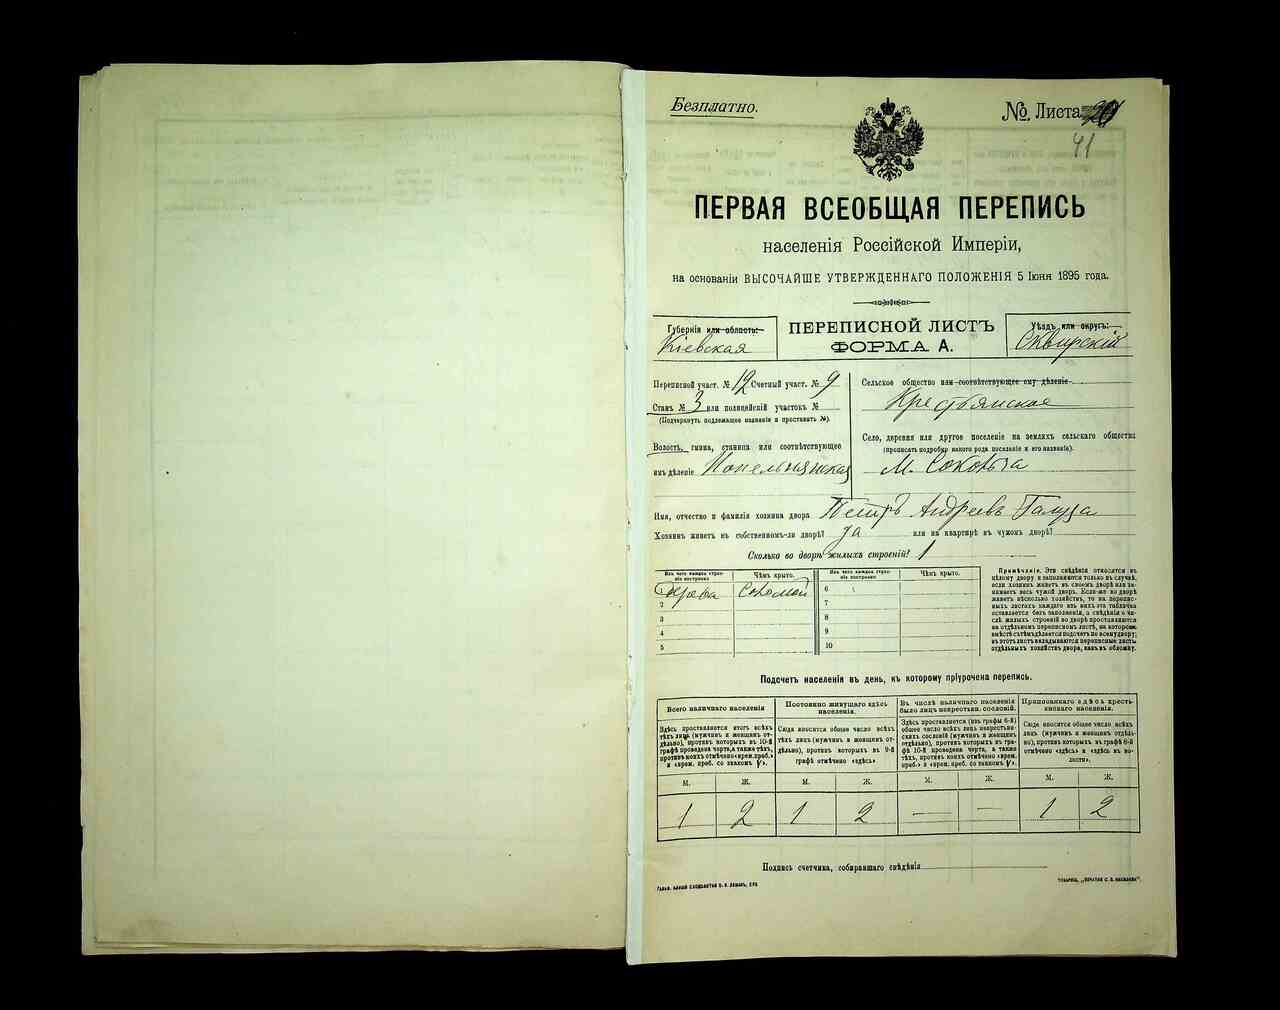 Безплатно.
№ Листа
41
ПЕРВАЯ ВСЕОБЩАЯ ПЕРЕПИСЬ
населенія Россійской Имперіи,
на основаніи ВЫСОЧАЙШЕ УТВЕРЖДЕННАГО ПОЛОЖЕНІЯ 5 Іюня 1895 года.
Губернія или область:
Кіевская
ПЕРЕПИСНОЙ ЛИСТЪ
ФОРМА А.
Уѣздъ или округъ:
Сквирскій
Переписной участ. № 12 Счетный участ. № 9
Станъ № 3 или полицейскій участокъ №
(Подчеркнуть подлежащее названіе и проставить №).
Волость, гмина, станица или соотвѣтствующее
имъ дѣленіе
Сельское общество или соотвѣтствующее ему дѣленіе
Крестьянское
Село, деревня или другое поселеніе на земляхъ сельскаго общества
(прописать подробно какого рода поселеніе и его названіе).
М.
Имя, отчество и фамилія хозяина двора Петръ Андреевъ Галуза
Хозяинъ живетъ въ собственномъ-ли дворѣ? да или на квартирѣ въ чужомъ дворѣ?
Сколько во дворѣ жилыхъ строеній? 1
Изъ чего каждое строеніе построено
Чѣмъ крыто.
Изъ чего каждое строеніе построено
Чѣмъ крыто.
Соломой
6
2
7
3
8
4
9
5
10
Примѣчаніе. Эти свѣдѣнія относятся къ
цѣлому двору и заполняются только въ случаѣ,
если хозяинъ живетъ въ своемъ дворѣ или занимаетъ
весь чужой дворъ. Если-же во дворѣ
живетъ нѣсколько хозяйствъ, то на переписныхъ
листахъ каждаго изъ нихъ эта табличка
оставляется безъ заполненія, а свѣдѣнія о числѣ
жилыхъ строеній во дворѣ проставляются
на отдѣльномъ переписномъ листѣ, на которомъ
вмѣстѣ съ тѣмъ дѣлается подсчетъ по всему двору;
въ этотъ листъ вкладываются переписные листы
отдѣльныхъ хозяйствъ двора, какъ въ обложку.
Подсчетъ населенія въ день, къ которому пріурочена перепись.
Всего наличнаго населенія
Здѣсь проставляется итогъ всѣхъ
тѣхъ лицъ (мужчинъ и женщинъ отдѣльно),
противъ которыхъ въ 10-й
графѣ проведена черта, а также тѣхъ,
противъ коихъ отмѣчено «врем. преб.»
и «врем. преб. со знакомъ V».
Постоянно живущаго здѣсь
населенія.
Сюда вносится общее число всѣхъ
тѣхъ лицъ (мужчинъ и женщинъ отдѣльно),
противъ которыхъ въ 9-й
графѣ отмѣчено «здѣсь»
Въ числѣ наличнаго населенія
было лицъ некрестьянск. сословій.
Здѣсь проставляется (изъ графы 6-й)
общее число всѣхъ лицъ некрестьянскихъ
сословій (мужчинъ и женщинъ
отдѣльно), противъ которыхъ въ графѣ
10-й проведена черта, а также
тѣхъ, противъ коихъ отмѣчено «врем.
преб.» и «врем. преб. со знакомъ V».
Приписаннаго здѣсь крестьянскаго
населенія.
Сюда вносится общее число всѣхъ
лицъ (мужчинъ и женщинъ отдѣльно),
противъ которыхъ въ графѣ 8-й
отмѣчено «здѣсь» и «здѣсь въ волости».
М. Ж. М. Ж. М. Ж. М. Ж.
1 2 1 2 — — 1 2
Подпись счетчика, собиравшаго свѣдѣнія